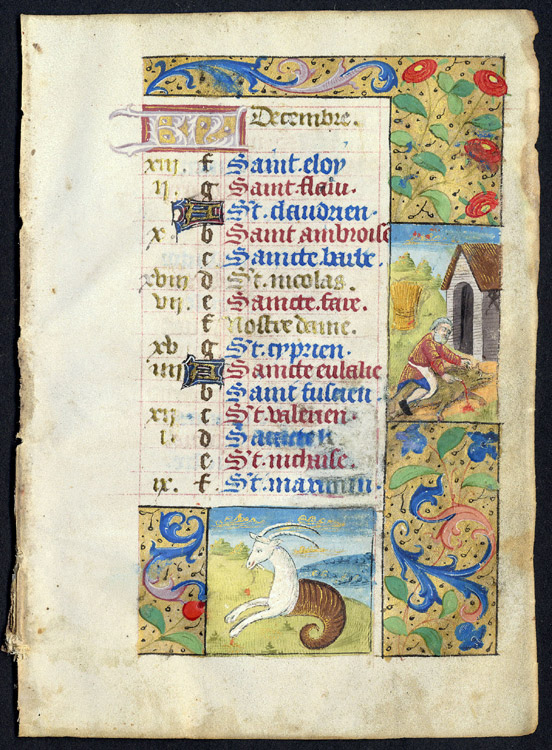 KL Decembre.
xiii. f Saint. eloy
ii. g Saint. flaiu.
A St. claudrien.
x. b Saint ambroise
c Saincte. barbe.
xviii d St. nicolas.
vii. e Saincte. faire.
f Nostre dame.
xb g St. cyprien.
iiii A Saincte eulalie
b Saint fuscien
xii c St. valerien.
i. d
e St. nichaise.
ix. f St. maximin